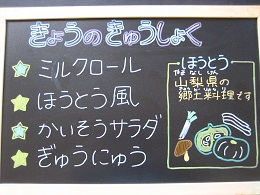 きょうの きゅうしょく
ミルクロール
ほうとう風
かいそうサラダ
ぎゅうにゅう
ほうとう
やまなしけん
山梨県の
きょうどりょうり
郷土料理です